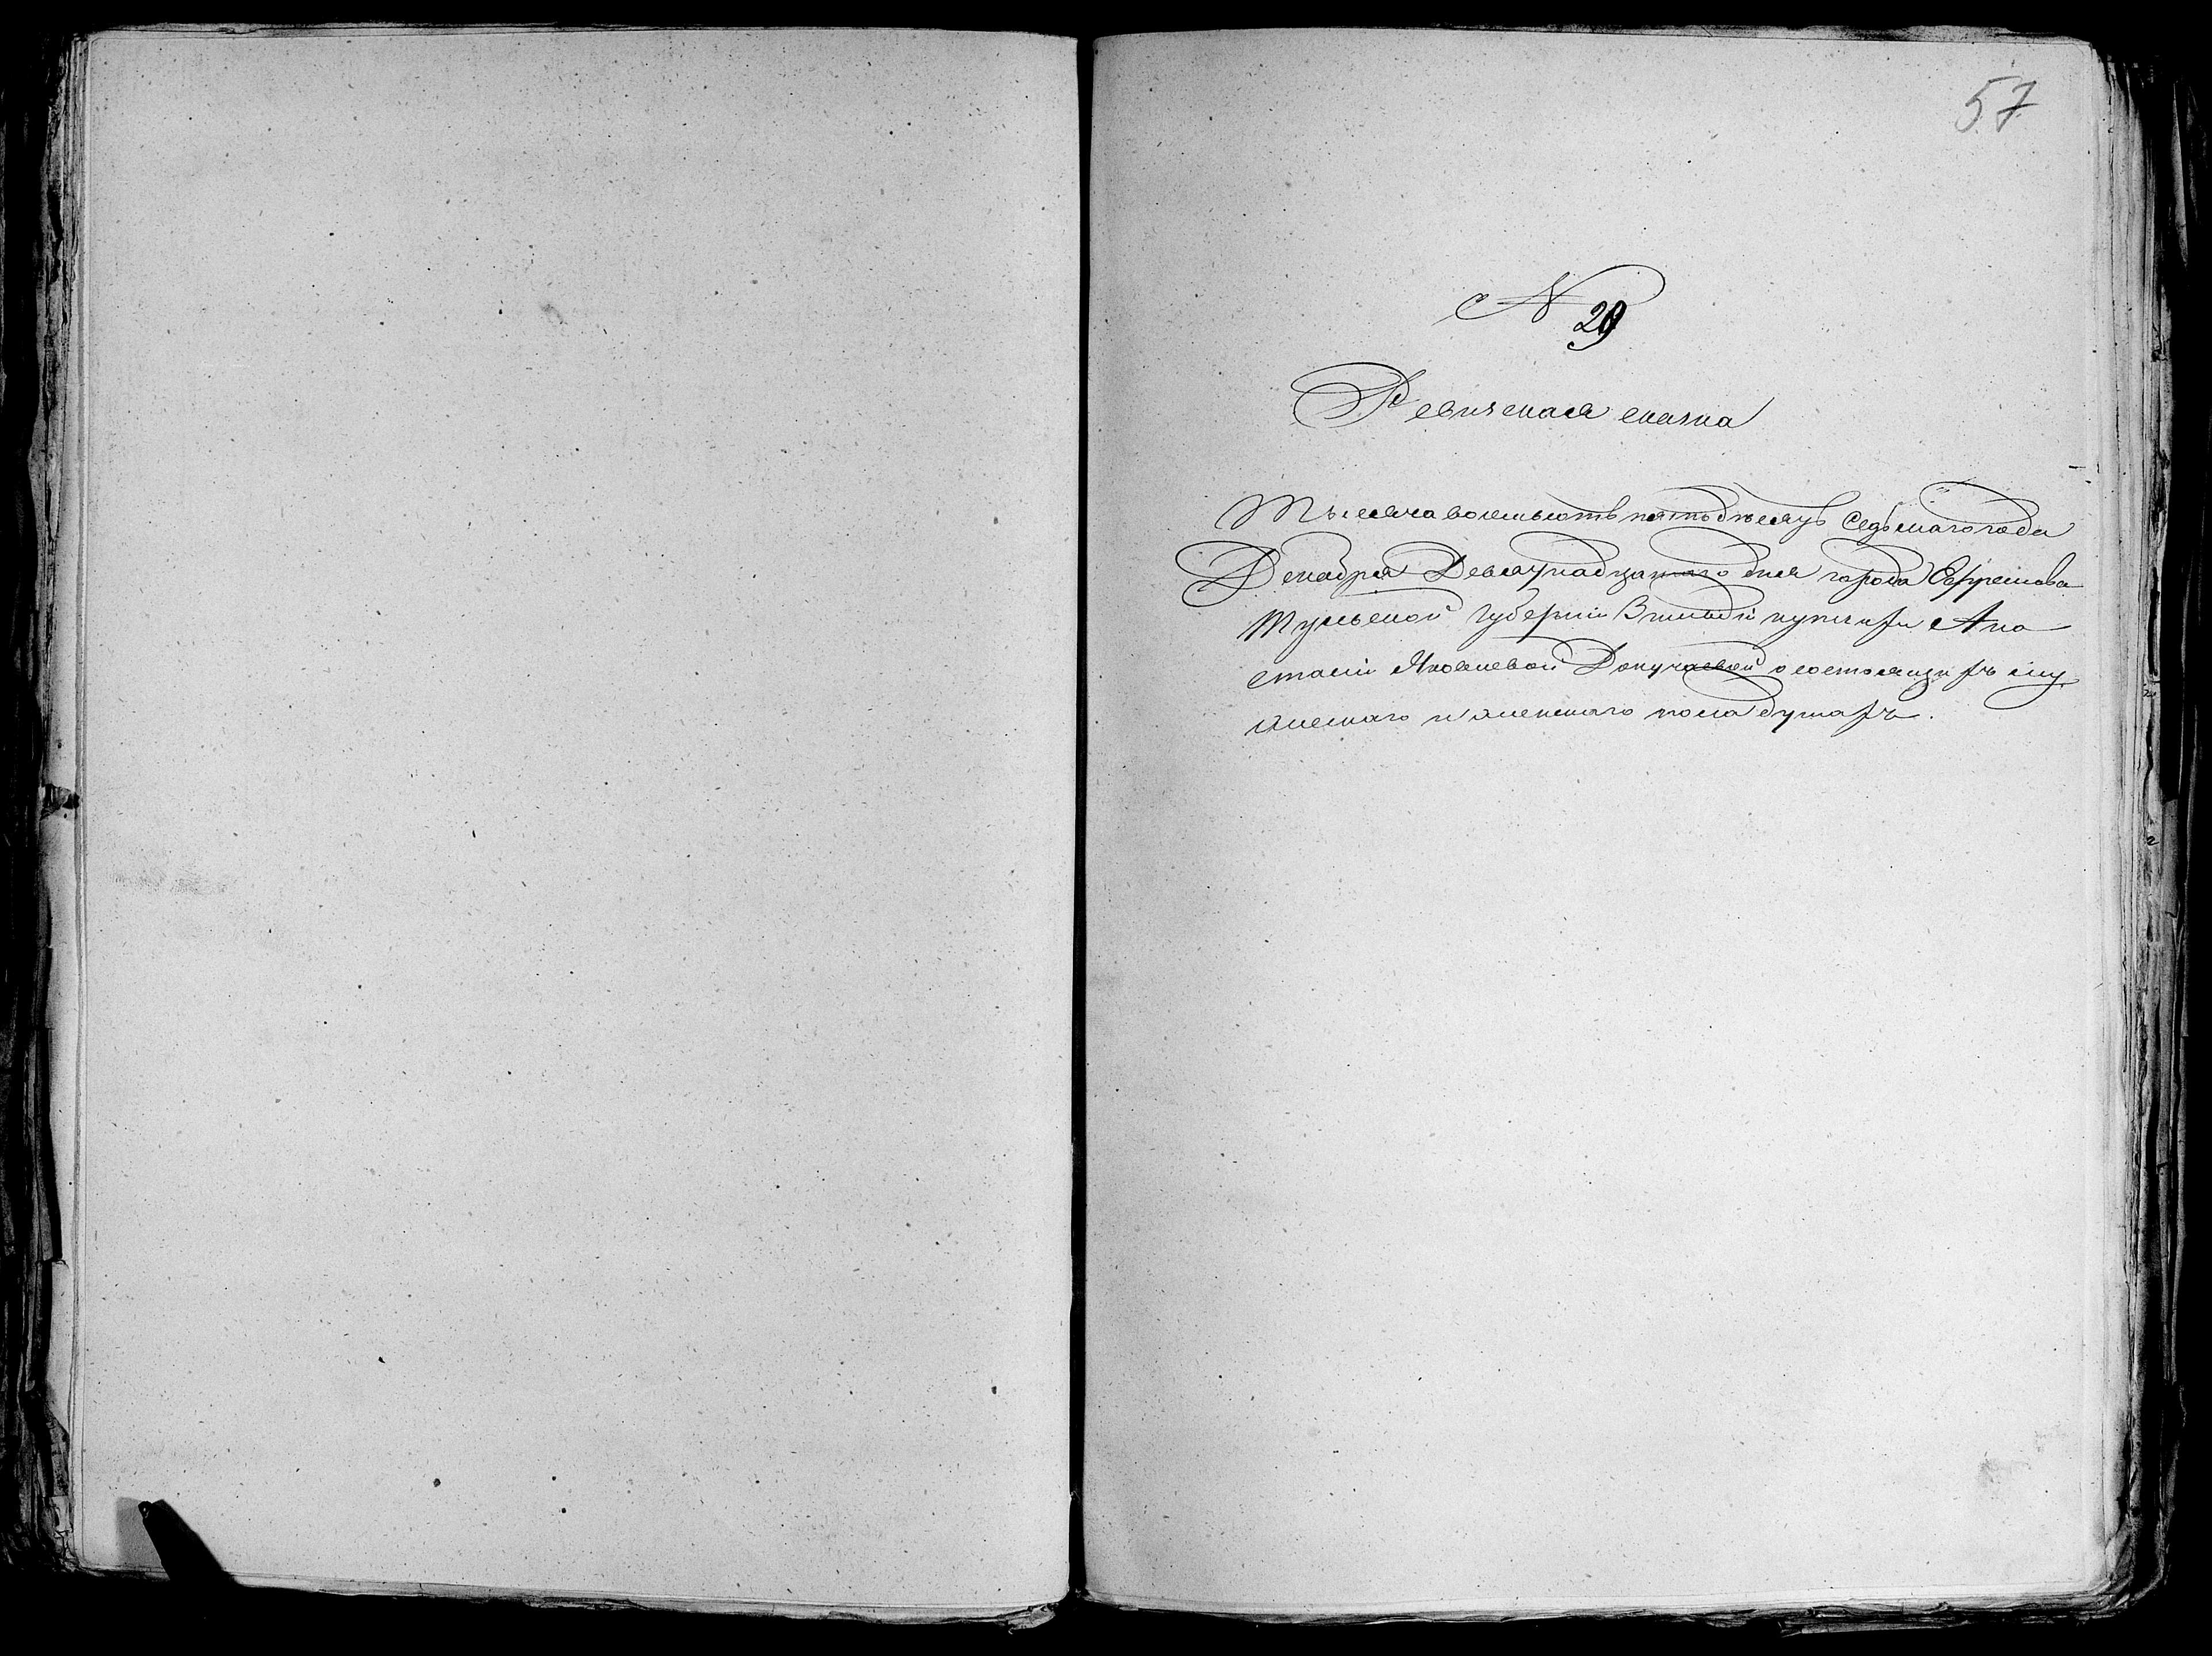 57
№ 29
Ревизская сказка
Тысяча восемьсотъ пятьдесяцъ седьмаго года
Декабря Девяцнадцатаго дня города Ефремова
Тульской губерніи 3 гильдіи купчихи Ана
стасіи Яковлевой Докучаевой о состоящихъ му
жескаго и женскаго пола душахъ.